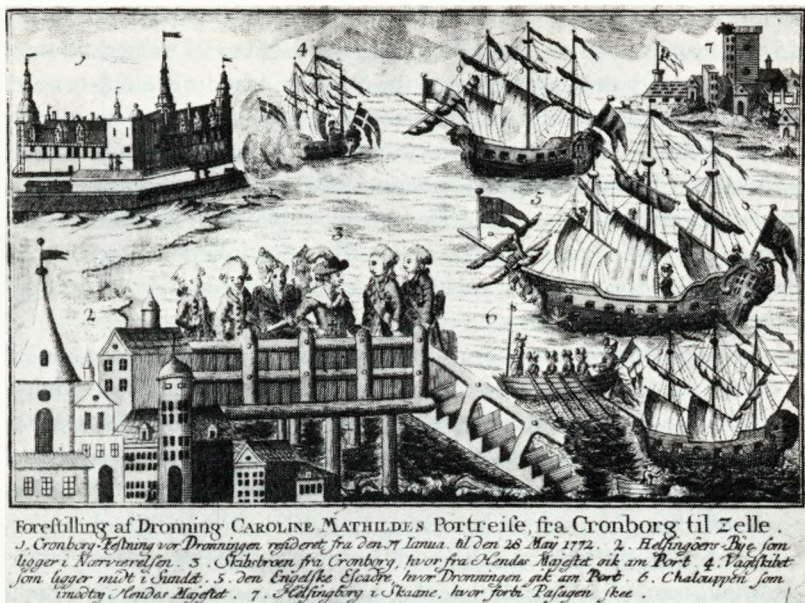 1
4
7
5
3
2
6
Forestilling af Dronning CAROLINE MATHILDES Portreise, fra Cronborg til Zelle.
1. Cronborg-Festning vor Dronningen resideret fra den 17 Ianua. til den 28 Maÿ 1772. 2. Helsingöers-Bÿe som
ligger i Nærværelsen. 3. Skibsbroen fra Cronborg, hvor fra Hendes Majestet gik am Port. 4. Vagtskibet
som ligger midt i Sundet. 5. den Engelske Escadre, hvor Dronningen gik am Port. 6. Chalouppen som
imodtog Hendes Majestet. 7. Helsingborg i Skaane, hvor forbi Pasagen skee.